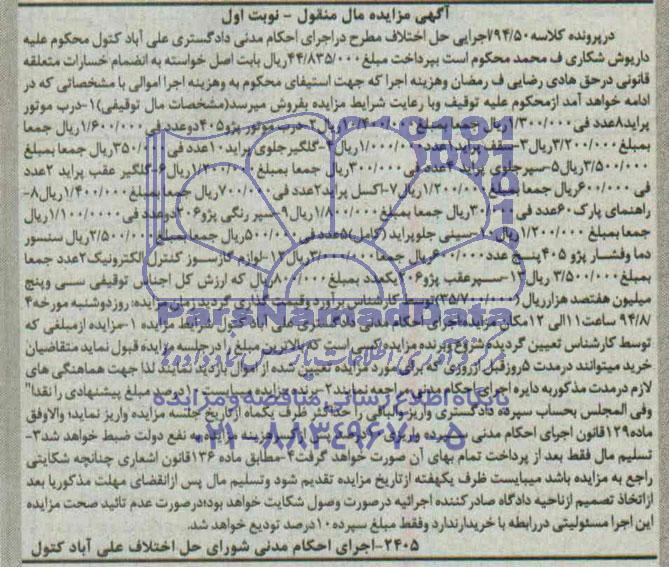 آگهی مزایده مال منقول - نوبت اول
درپرونده کلاسه ۹۴/۵۰/اجرایی حل اختلاف مطرح دراجرای احکام مدنی دادگستری علی آباد کتول محکوم علیه
داریوش شکاری ف محمد محکوم است بپرداخت مبلغ ۴۴/۸۳۵/۰۰۰ریال بابت اصل خواسته به انضمام خسارات متعلقه
قانونی درحق هادی رضایی ف رمضان وهزینه اجرا که جهت استیفای محکوم به وهزینه اجرا اموالی با مشخصاتی که در
ادامه خواهد آمد ازمحکوم علیه توقیف وبا رعایت شرایط مزایده بفروش میرسد(مشخصات مال توقیفی)۱-درب موتور
پراید۸عدد فی ۱/۳۰۰/۰۰۰ریال جمعا بمبلغ ۱۰/۴۰۰/۰۰۰ریال۲-درب موتور پژو۴۰۵دوعدد فی ۱/۶۰۰/۰۰۰ریال جمعا
بمبلغ ۳/۲۰۰/۰۰۰ریال۳-سقف پراید۱عدد ۱/۰۰۰/۰۰۰ریال۴-گلگیرجلوی پراید۱۰عدد فی ۳۵۰/۰۰۰ریال جمعا بمبلغ
۳/۵۰۰/۰۰۰ریال۵-سپرجلوی پراید ۴عدد فی ۳۰۰/۰۰۰ریال جمعا بمبلغ ۱/۲۰۰/۰۰۰ریال۶-گلگیر عقب پراید ۲عدد
فی ۶۰۰/۰۰۰ریال جمعا بمبلغ ۱/۲۰۰/۰۰۰ریال۷-اکسل پراید۲عدد فی ۷۰۰/۰۰۰ریال جمعا بمبلغ ۱/۴۰۰/۰۰۰ریال۸-
راهنمای پارک۶۰عدد فی ۳۰/۰۰۰ریال جمعا بمبلغ ۱/۸۰۰/۰۰۰ریال۹-سپر رنگی پژو۲۰۶دوعدد فی ۱/۱۰۰/۰۰۰ریال
جمعا بمبلغ ۱/۲۰۰/۰۰۰ریال۱۰-سینی جلوپراید(کامل)۵عدد فی ۵۰۰/۰۰۰ریال جمعا بمبلغ ۲/۵۰۰/۰۰۰ریال سنسور
دما وفشـار پژو ۴۰۵پنـج عدد ۶۰۰/۰۰۰ریال جمعا ۳/۰۰۰/۰۰۰ریال۱۲-لوازم گازسـوز کنترل الکترونیک۲عدد جمعا
بمبلغ ۳/۵۰۰/۰۰۰ریال۱۳-سـپرعقب پژو۲۰۶یکعدد بمبلغ ۸۰۰/۰۰۰ریال که ارزش کل اجناس توقیفی سـی وپنج
میلیون هفتصد هزارریال(۳۵/۷۰۰/۰۰۰)توسط کارشناس برآورد وقیمت گذاری گردید زمان مزایده: روزدوشنبه مورخه۴
۹۴/۸/ ساعت۱۱الی ۱۲مکان مزایده اجرای احکام مدنی دادگستری علی آباد کتول شرایط مزایده ۱-مزایده ازمبلغی که
توسط کارشناس تعیین گردیده شروع وبرنده مزایده کسی است که بالاترین مبلغ را درجلسه مزایده قبول نماید متقاضیان
خرید میتوانند درمدت ۵روزقبل ازروزی که برای مورد مزایده تعیین شده از اموال بازدید نمایند لذا جهت هماهنگی های
لازم درمدت مذکوربه دایره اجرای احکام مدنی مراجعه نمایند۲-برنده مزایده میبایست ۱۰درصد مبلغ پیشنهادی را نقدا"
وفی المجلس بحساب سپرده دادگستری واریزوالباقی را حداکثر ظرف یکماه ازتاریخ جلسه مزایده واریز نماید؛ والاوفق
ماده۱۲۹قانون اجرای احکام مدنی سپرده واریزی پس از کسر هزینه مزایده به نفع دولت ضبط خواهد شد۳-
تسلیم مال فقط بعد از پرداخت تمام بهای آن صورت خواهد گرفت۴-مطابق ماده ۱۳۶قانون اشعاری چنانچه شکایتی
راجع به مزایده باشد میبایست ظرف یکهفته ازتاریخ مزایده تقدیم شود وتسلیم مال پس ازانقضای مهلت مذکوریا بعد
ازاتخاذ تصمیم ازناحیه دادگاه صادرکننده اجرائیه درصورت وصول شکایت خواهد بود؛درصورت عدم تائید صحت مزایده
این اجرا مسئولیتی دررابطه با خریدارندارد وفقط مبلغ سپرده۱۰درصد تودیع خواهد شد.
۲۴۰۵-اجرای احکام مدنی شورای حل اختلاف علی آباد کتول
ParsNamadData
مرکز فرآوری اطلاعات پارس نماد داده ها
پایگاه اطلاع رسانی مناقصه و مزایده
۰۲۱-۸۸۳۴۹۶۷۰-۵